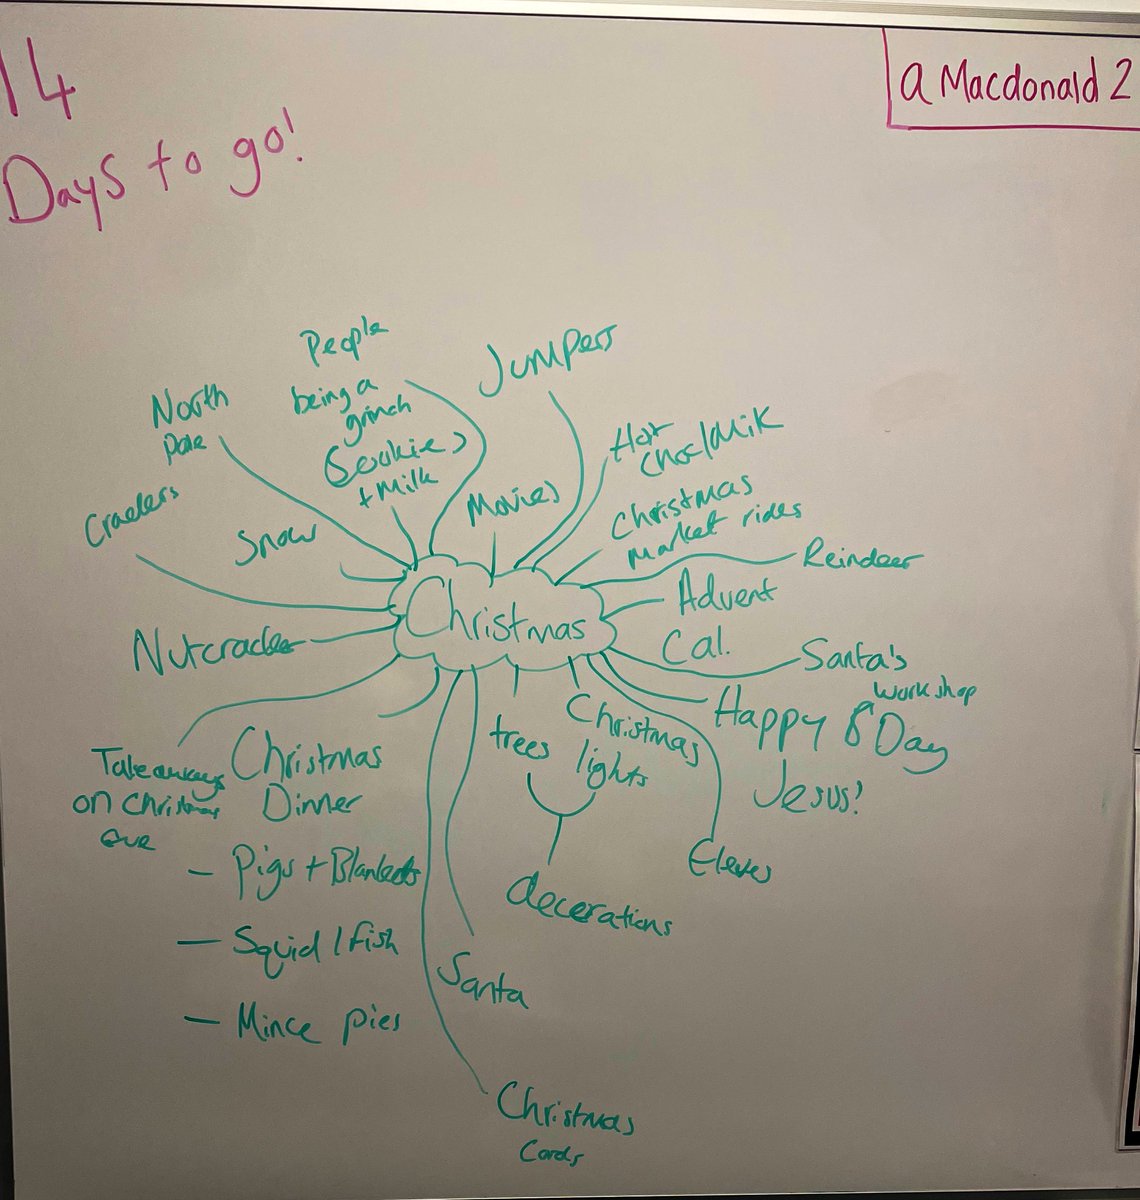 14
Days to go!
a Macdonald 2
People
being a
grinch
Jumpers
North
Pole
Cookies
+ Milk
Movies
Hot
Choc/Milk
Crackers
Snow
Christmas
market rides
Reindeer
Advent
Cal.
Christmas
Nutcracker
Santa's
workshop
Happy B Day
Jesus!
Christmas
lights
trees
decerations
Elves
Takeaways
on Christmas
eve
Christmas
Dinner
- Pigs + Blankets
- Squid / fish
- Mince pies
Santa
Christmas
Cards